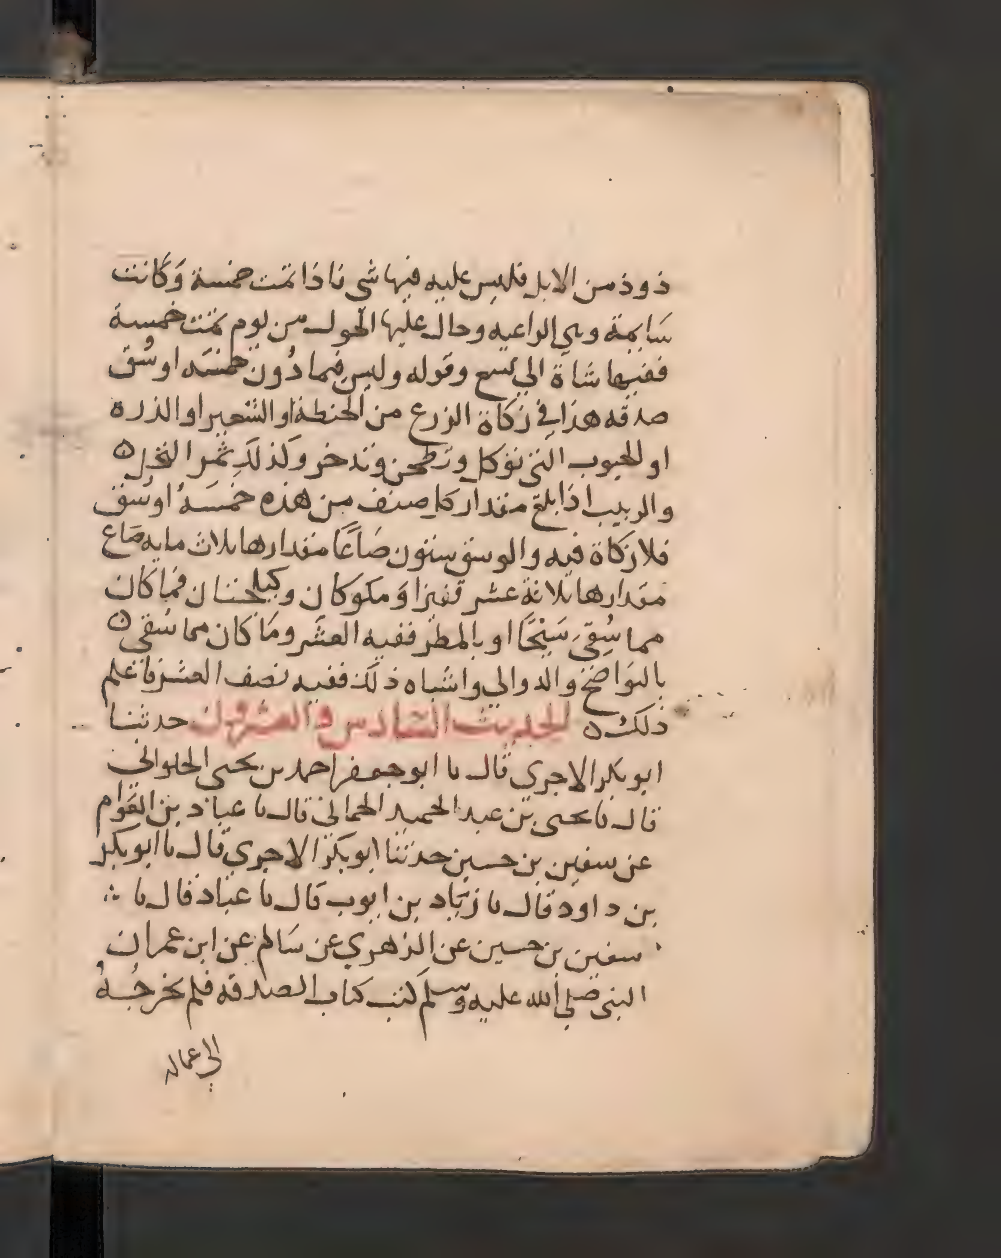 ذود من الابل فليس عليه فيها شي فاذا تمت خمسة وَكانت
سَايمة وهي الراعيه وحال عليها الحول من يوم تمت خمسة
ففيها شاة الي تسع وقوله وليس فيما دُون خمسَه اوسُق
صدقه هذا في زكاة الزرع من الحنطة او الشعير او الذره
او الحبوب التي توكل وتطحن وتدخر وكذلك ثمر النخل ه
والزبيب اذا بلغ مقدار كل صنف من هذه خمسَهُ اوسُق
فلا زكاة فيه والوسق ستون صَاعًا مقدارها ثلاث مايه صَاع
مقدارها ثلاثة عشر قفيزا وَمكوكان وكيلجتان فما كان
مما سُقِىَ سَيْحًا او بالمطر ففيه العشر ومَا كان مما سُقى ه
بالنوَاضح والدوالي واشباه ذلك ففيه نصف العشر فاعلم
ذلك ه الحديث السَّادس والعشرون حدثنا
ابو بكر الاجرى قال نا ابو جعفر احمد بن يحيى الحلوانى
قال نا يحيى بن عبد الحميد الحمانى قال نا عباد بن العَوام
عن سفين بن حسين حدثنا ابو بكر الاجري قال نا ابو بكر
بن داود قال نا زيَاد بن ايوب قال نا عباد قال نا ∴
سفين بن حسين عن الزهري عن سَالم عن ابن عمران
النبى صلى الله عليه وسلم كتب كتاب الصدقه فلم يخرجْهُ
الى عماله